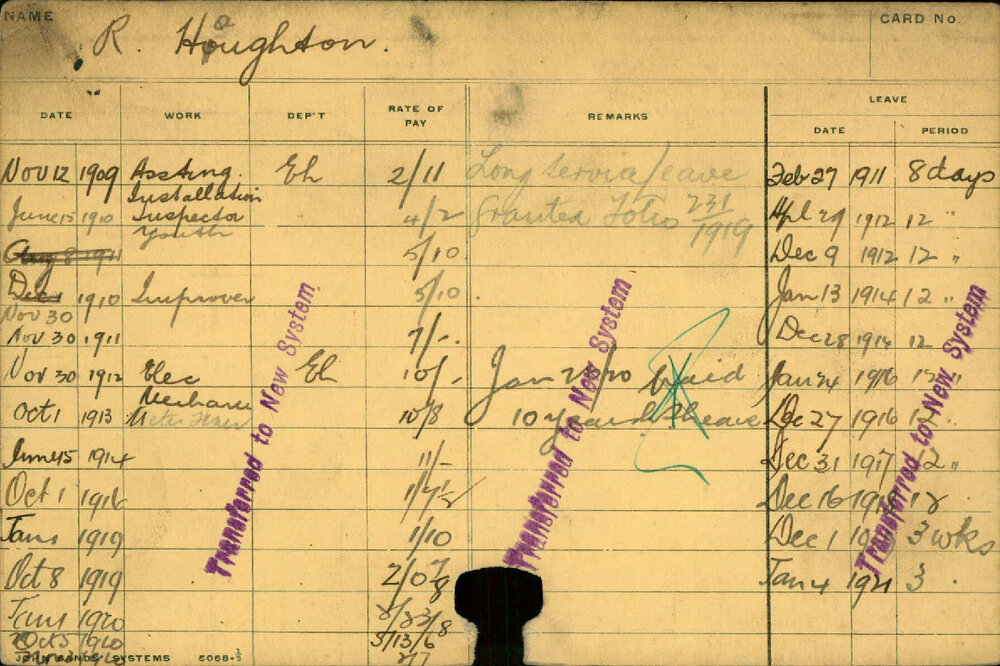 NAME
R. Houghton.
CARD No.
DATE WORK DEP'T RATE OF PAY REMARKS LEAVE
DATE PERIOD
Nov 12 1909 Assting. El 2/11 Long service leave Feb 27 1911 8 days
Installation
June 15 1910 Inspector 4/2 Granted Folio 231/1919 Apl 29 1912 12 "
Youth
Aug 8 1911 5/10 Dec 9 1912 12 "
Dec 1 1910 Improver 5/10. Jan 13 1914 12 "
Nov 30
Nov 30 1911 7/-. Dec 28 1914 12
Nov 30 1912 Elec El 10/- Jan 20 Paid Jan 24 1916 12 "
Mechanic
Oct 1 1913 10/8 10 years leave Dec 27 1916 12
June 15 1914 11/- Dec 31 1917 12 "
Oct 1 1916 Dec 16 12
Jan 1 1919 1/10 Dec 1 3 wks
Oct 8 1919 2/0 7/8 Jan 4 1921 3
Jan 1 1920
Oct 3 1920 5/13/6
Transferred to New System.
Transferred to New System
Transferred to New System
SYSTEMS 5068-